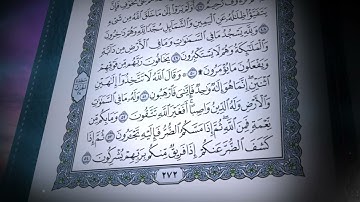 أَوَلَمْ يَرَوْا۟ إِلَىٰ مَا خَلَقَ ٱللَّهُ مِن شَىْءٍ
يَتَفَيَّؤُا۟ ظِلَـٰلُهُۥ عَنِ ٱلْيَمِينِ وَٱلشَّمَآئِلِ سُجَّدًا لِّلَّهِ وَهُمْ دَٰخِرُونَ
۝٤٨ وَلِلَّهِ يَسْجُدُ مَا فِى ٱلسَّمَـٰوَٰتِ وَمَا فِى ٱلْأَرْضِ مِن دَآبَّةٍ
وَٱلْمَلَـٰٓئِكَةُ وَهُمْ لَا يَسْتَكْبِرُونَ ۝٤٩ يَخَافُونَ رَبَّهُم مِّن فَوْقِهِمْ
وَيَفْعَلُونَ مَا يُؤْمَرُونَ ۩ ۝٥٠ وَقَالَ ٱللَّهُ لَا تَتَّخِذُوٓا۟ إِلَـٰهَيْنِ
ٱثْنَيْنِ إِنَّمَا هُوَ إِلَـٰهٌ وَٰحِدٌ فَإِيَّـٰىَ فَٱرْهَبُونِ ۝٥١ وَلَهُۥ مَا فِى ٱلسَّمَـٰوَٰتِ
وَٱلْأَرْضِ وَلَهُ ٱلدِّينُ وَاصِبًا أَفَغَيْرَ ٱللَّهِ تَتَّقُونَ ۝٥٢ وَمَا بِكُم مِّن
نِّعْمَةٍ فَمِنَ ٱللَّهِ ثُمَّ إِذَا مَسَّكُمُ ٱلضُّرُّ فَإِلَيْهِ تَجْـَٔرُونَ ۝٥٣ ثُمَّ إِذَا
كَشَفَ ٱلضُّرَّ عَنكُمْ إِذَا فَرِيقٌ مِّنكُم بِرَبِّهِمْ يُشْرِكُونَ ۝٥٤
٢٧٢